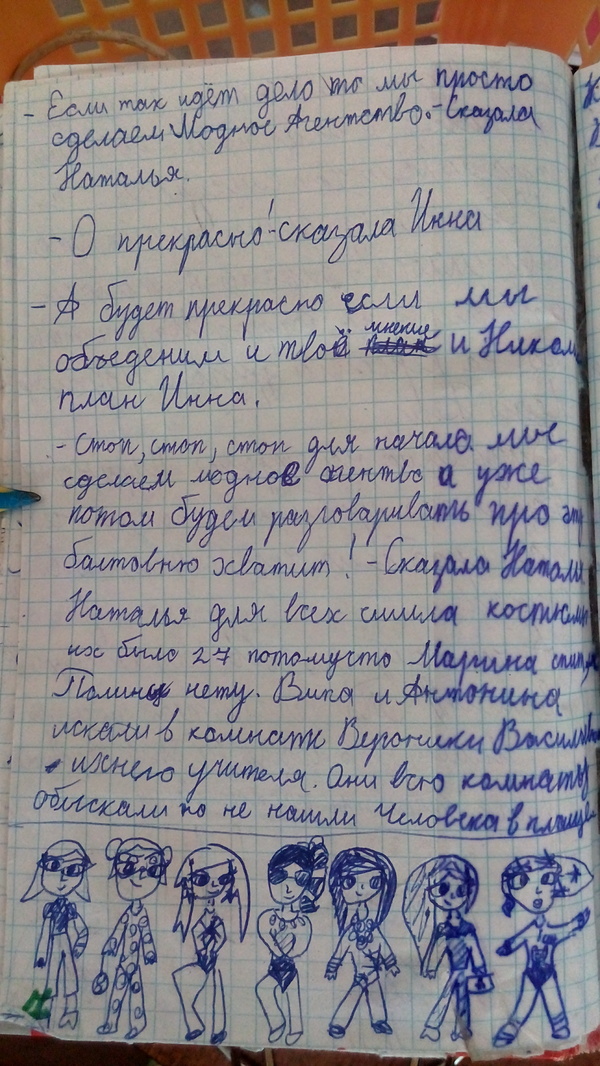 - Если так идёт дело то мы просто
сделаем Модное Агентство. - Сказала
Наталья.
- О прекрасно! - сказала Инна
- А будет прекрасно если мы
объеденим и твоё мнение и
план Инна.
- Стоп, стоп, стоп для начала мы
сделаем модное агенство а уже
потом будем разговаривать про эту
балтовню хватит! - Сказала Наталья
Наталья для всех сшила костюмы
их было 27 потомусто Марина спит, а
Полины нету. Випа и Антонина
искали в комнате Вероники Васильевны
ихнего учителя. Они всю комнату
обыскали но не нашли Человека в плаще